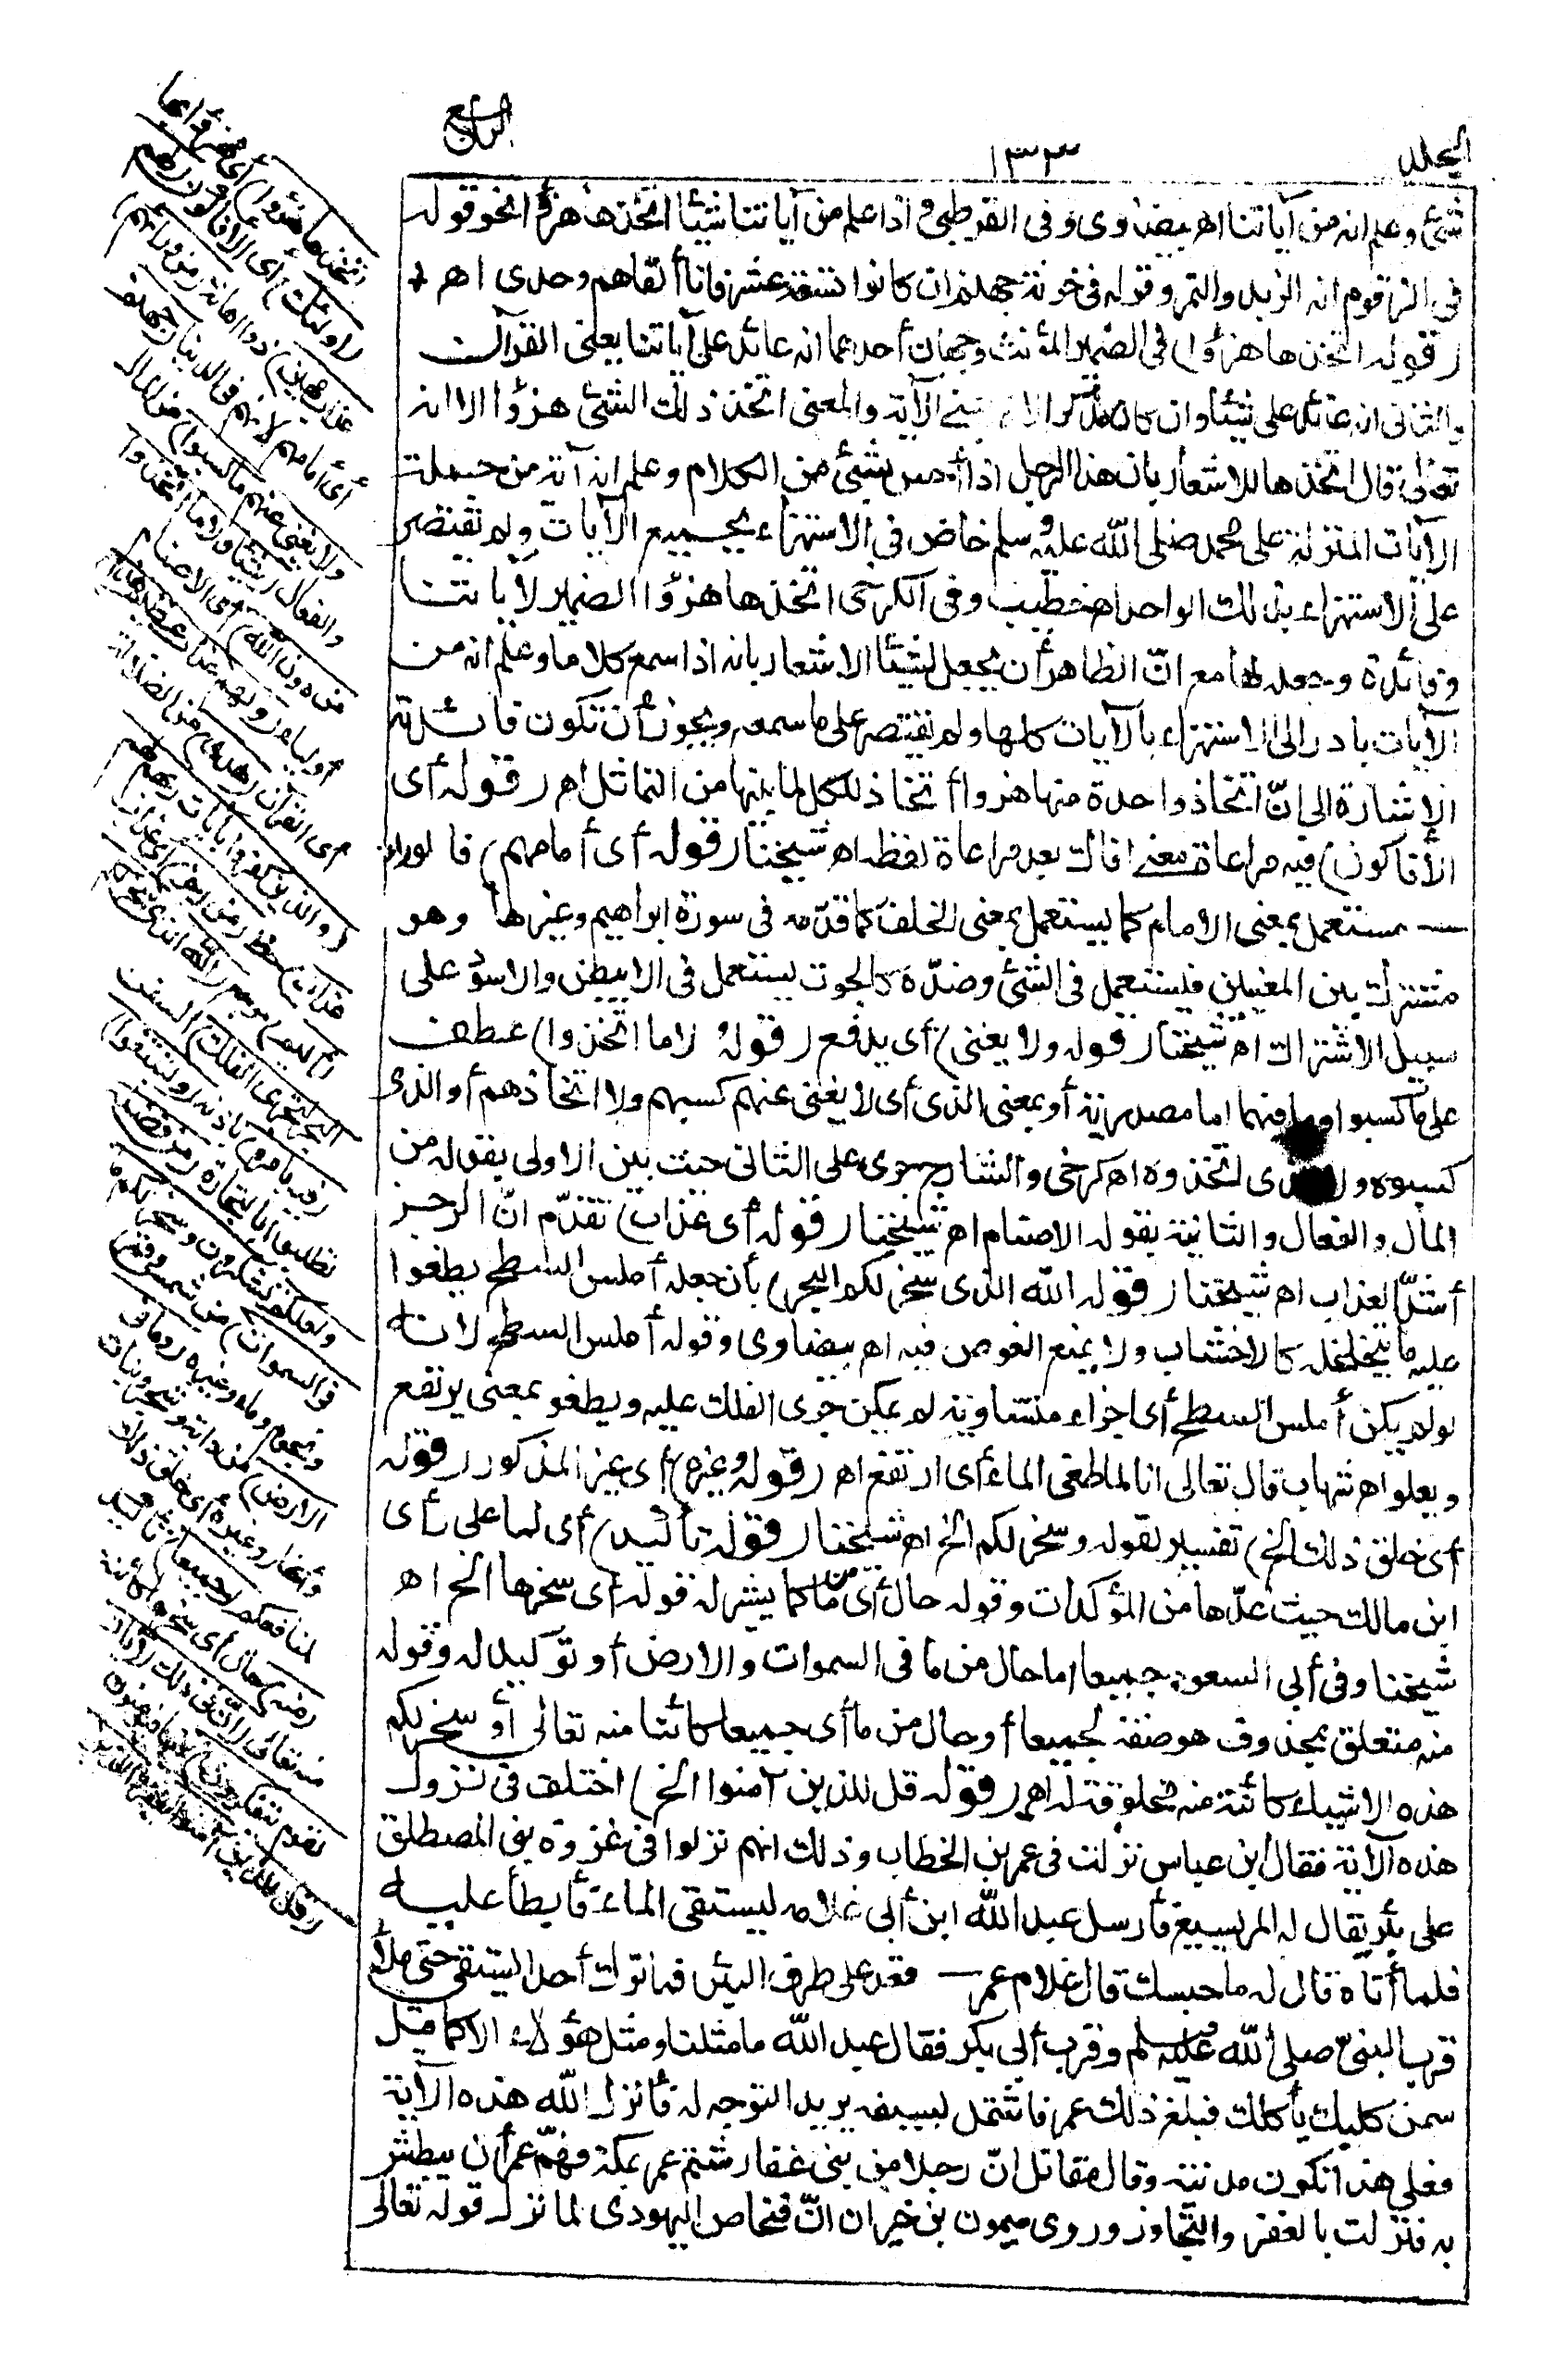 المجلد
١٣٣
الرابع
شئ وعلم انه من آياتنا اهـ بيضاوى وفى القرطبى واذا علم من آياتنا شيئا اتخذها هزوا نحو قوله
فى الزقوم انه الزبد والتمر وقوله فى خزنة جهنم ان كانوا تسعة عشر فانا ألقاهم وحدى اهـ
(قوله اتخذها هزوا) فى الضمير المؤنث وجهان أحدهما انه عائد على آياتنا يعنى القرآن
والثانى انه عائد على شيئا وان كان مذكرا لانه بمعنى الآية والمعنى اتخذ ذلك الشئ هزؤا الا انه
تعالى قال اتخذها للاشعار بان هذا الرجل اذا أحس بشئ من الكلام وعلم انه آية من جملة
الآيات المنزلة على محمد صلى الله عليه وسلم خاض فى الاستهزاء بجميع الآيات ولم يقتصر
على الاستهزاء بذلك الواحد اهـ خطيب وفى الكرخى اتخذها هزؤا الضمير لآياتنا
وفائدة وجعله لها مع انّ الظاهر أن يجعل لشيئا الاشعار بانه اذا سمع كلاما وعلم انه من
الآيات بادر الى الاستهزاء بالآيات كلها ولم يقتصر على ما سمعه ويجوز أن تكون فائدته
الاشارة الى انّ اتخاذ واحدة منها هزوا أتخاذ للكل لما بينها من التماثل اهـ (قوله أى
الأفاكون) فيه مراعاة معنى افاك بعد مراعاة لفظه اهـ شيخنا (قوله أى أمامهم) فالوراء
مستعمل بمعنى الامام كما يستعمل بمعنى الخلف كما قدّمه فى سورة ابراهيم وغيرها وهو
مشترك بين المعنيين فليستعمل فى الشئ وضدّه كالجون يستعمل فى الابيض والاسود على
سبيل الاشتراك اهـ شيخنا (قوله ولا يغنى) أى يدفع (قوله لا ما اتخذوا) عطف
على ما كسبوا وما فيهما اما مصدرية أو بمعنى الذى أى لا يغنى عنهم كسبهم ولا اتخاذهم أو الذى
كسبوه ولا الذى اتخذوه اهـ كرخى والشارح جرى على الثانى حيث بين الاولى بقوله من
المال والفعال والثانية بقوله الاصنام اهـ شيخنا (قوله أى عذاب) تقدّم انّ الرجز
أشدّ العذاب اهـ شيخنا (قوله الله الذى سخر لكم البحر) بأن جعله أملس السطح يطفوا
عليه ما يتخلخل كالاخشاب ولا يمنع الغوص فيه اهـ بيضاوى وقوله أملس السطح لانه
لو لم يكن أملس السطح أى اجزاء متساوية لم يمكن جرى الفلك عليه ويطفو بمعنى يرتفع
ويعلو اهـ شهاب قال تعالى انا لما طغى الماء أى ارتفع اهـ (قوله وغيره) أى غير المذكور (قوله
أى خلق ذلك الخ) تفسير لقوله وسخر لكم الخ اهـ شيخنا (قوله تأكيد) أى لما على رأى
ابن مالك حيث عدّها من المؤكدات وقوله حال أى من ما كما يشير له قوله أى سخرها الخ اهـ
شيخنا وفى أبى السعود جميعا اما حال من ما فى السموات والارض أو توكيد له وقوله
منه متعلق بمحذوف هو صفة لجميعا أو حال من ما أى جميعا كائنا منه تعالى أو سخر لكم
هذه الاشياء كائنة منه مخلوقة له اهـ (قوله قل للذين آمنوا الخ) اختلف فى نزول
هذه الآية فقال ابن عباس نزلت فى عمر بن الخطاب وذلك انهم نزلوا فى غزوة بنى المصطلق
على بئر يقال له المريسيع فأرسل عبد الله ابن أبى غلامه ليستقى الماء فأبطأ عليه
فلما أتاه قال له ما حبسك قال غلام عمر قعد على طرف البئر فما ترك أحدا ليستقى حتى ملأ
قرب النبى صلى الله عليه وسلم وقرب أبى بكر فقال عبد الله ما مثلنا ومثل هؤلاء الا كما قيل
سمن كلبك يأكلك فبلغ ذلك عمر فاشتمل بسيفه يريد التوجه له فأنزل الله هذه الآية
فعلى هذا تكون مدنية وقال مقاتل انّ رجلا من بنى غفار شتم عمر بمكة فهمّ عمر أن يبطش
به فنزلت بالعفو والتجاوز وروى ميمون بن مهران انّ فنحاص اليهودى لما نزل قوله تعالى
اتخذها هزؤا) أى مهزوا بها
(أولئك) أى الافاكون (لهم
عذاب مهين) ذو اهانة (من ورائهم)
أى أمامهم لانهم فى الدنيا (جهنم
ولا يغنى عنهم ما كسبوا) من المال
والفعال (شيئا ولا ما اتخذوا
من دون الله) أى الاصنام
أولياء ولهم عذاب عظيم هذا)
أى القرآن (هدى) من الضلالة
(والذين كفروا بآيات ربهم لهم
عذاب) حظ (من رجز) أى عذاب
(أليم) موجع (الله الذى سخر لكم
البحر لتجرى الفلك) السفن
(فيه بأمره) باذنه (ولتبتغوا)
تطلبوا بالتجارة (من فضله
ولعلكم تشكرون وسخر لكم
ما فى السموات) من شمس وقمر
ونجوم وماء وغيره (وما فى
الارض) من دابة وشجر ونبات
وأنهار وغيره أى خلق ذلك
لمنافعكم (جميعا) تأكيد
(منه) حال أى سخرها كائنة
منه تعالى (انّ فى ذلك لآيات
لقوم يتفكرون) فيها فيؤمنون
(قل للذين آمنوا يغفروا للذين